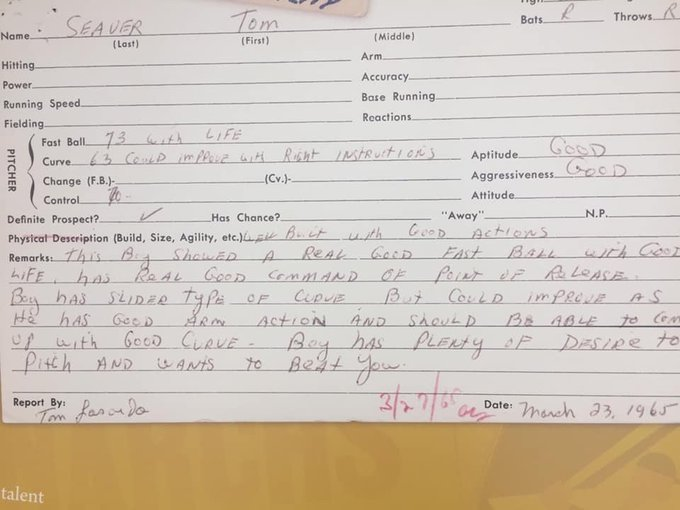 Bats R Throws R
Name SEAVER Tom
(Last) (First) (Middle)
Hitting Arm
Power Accuracy
Running Speed Base Running
Fielding Reactions
PITCHER
Fast Ball 73 with LIFE
Curve 63 Could improve with Right INSTRUCTIONS Aptitude GOOD
Change (F.B.)- (Cv.)- Aggressiveness GOOD
Control 70- Attitude
Definite Prospect? ✓ Has Chance? "Away" N.P.
Physical Description (Build, Size, Agility, etc.) Well Built with Good ACTIONS
Remarks: This Boy SHOWED A REAL GOOD FAST BALL with GOOD
LIFE, hAS REAL GOOD COMMAND OF POINT OF RELEASE.
Boy hAS SLIDER TYPE OF CURVE But COULD IMPROVE AS
He hAS GOOD ARM ACTION AND SHOULD BE ABLE to COM
UP with GOOD CURVE - Boy hAS PLENTY OF DESIRE to
Pitch AND WANTS to BEAT You.
Report By: Tom Lasorda
3/27/65
Date: March 23, 1965
talent